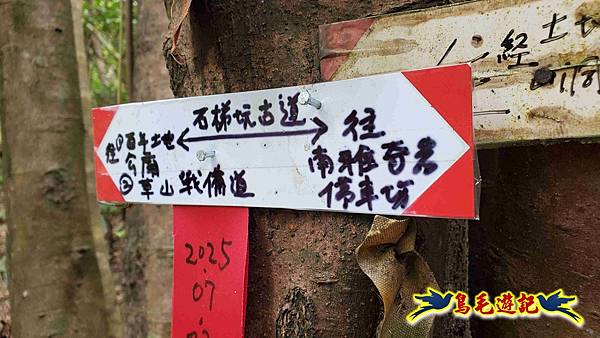 經土地
石梯坑古道
往①百年土地
公廟
②草山戰備道
往
南雅奇岩
停車場
2025
.07
鳥毛遊記